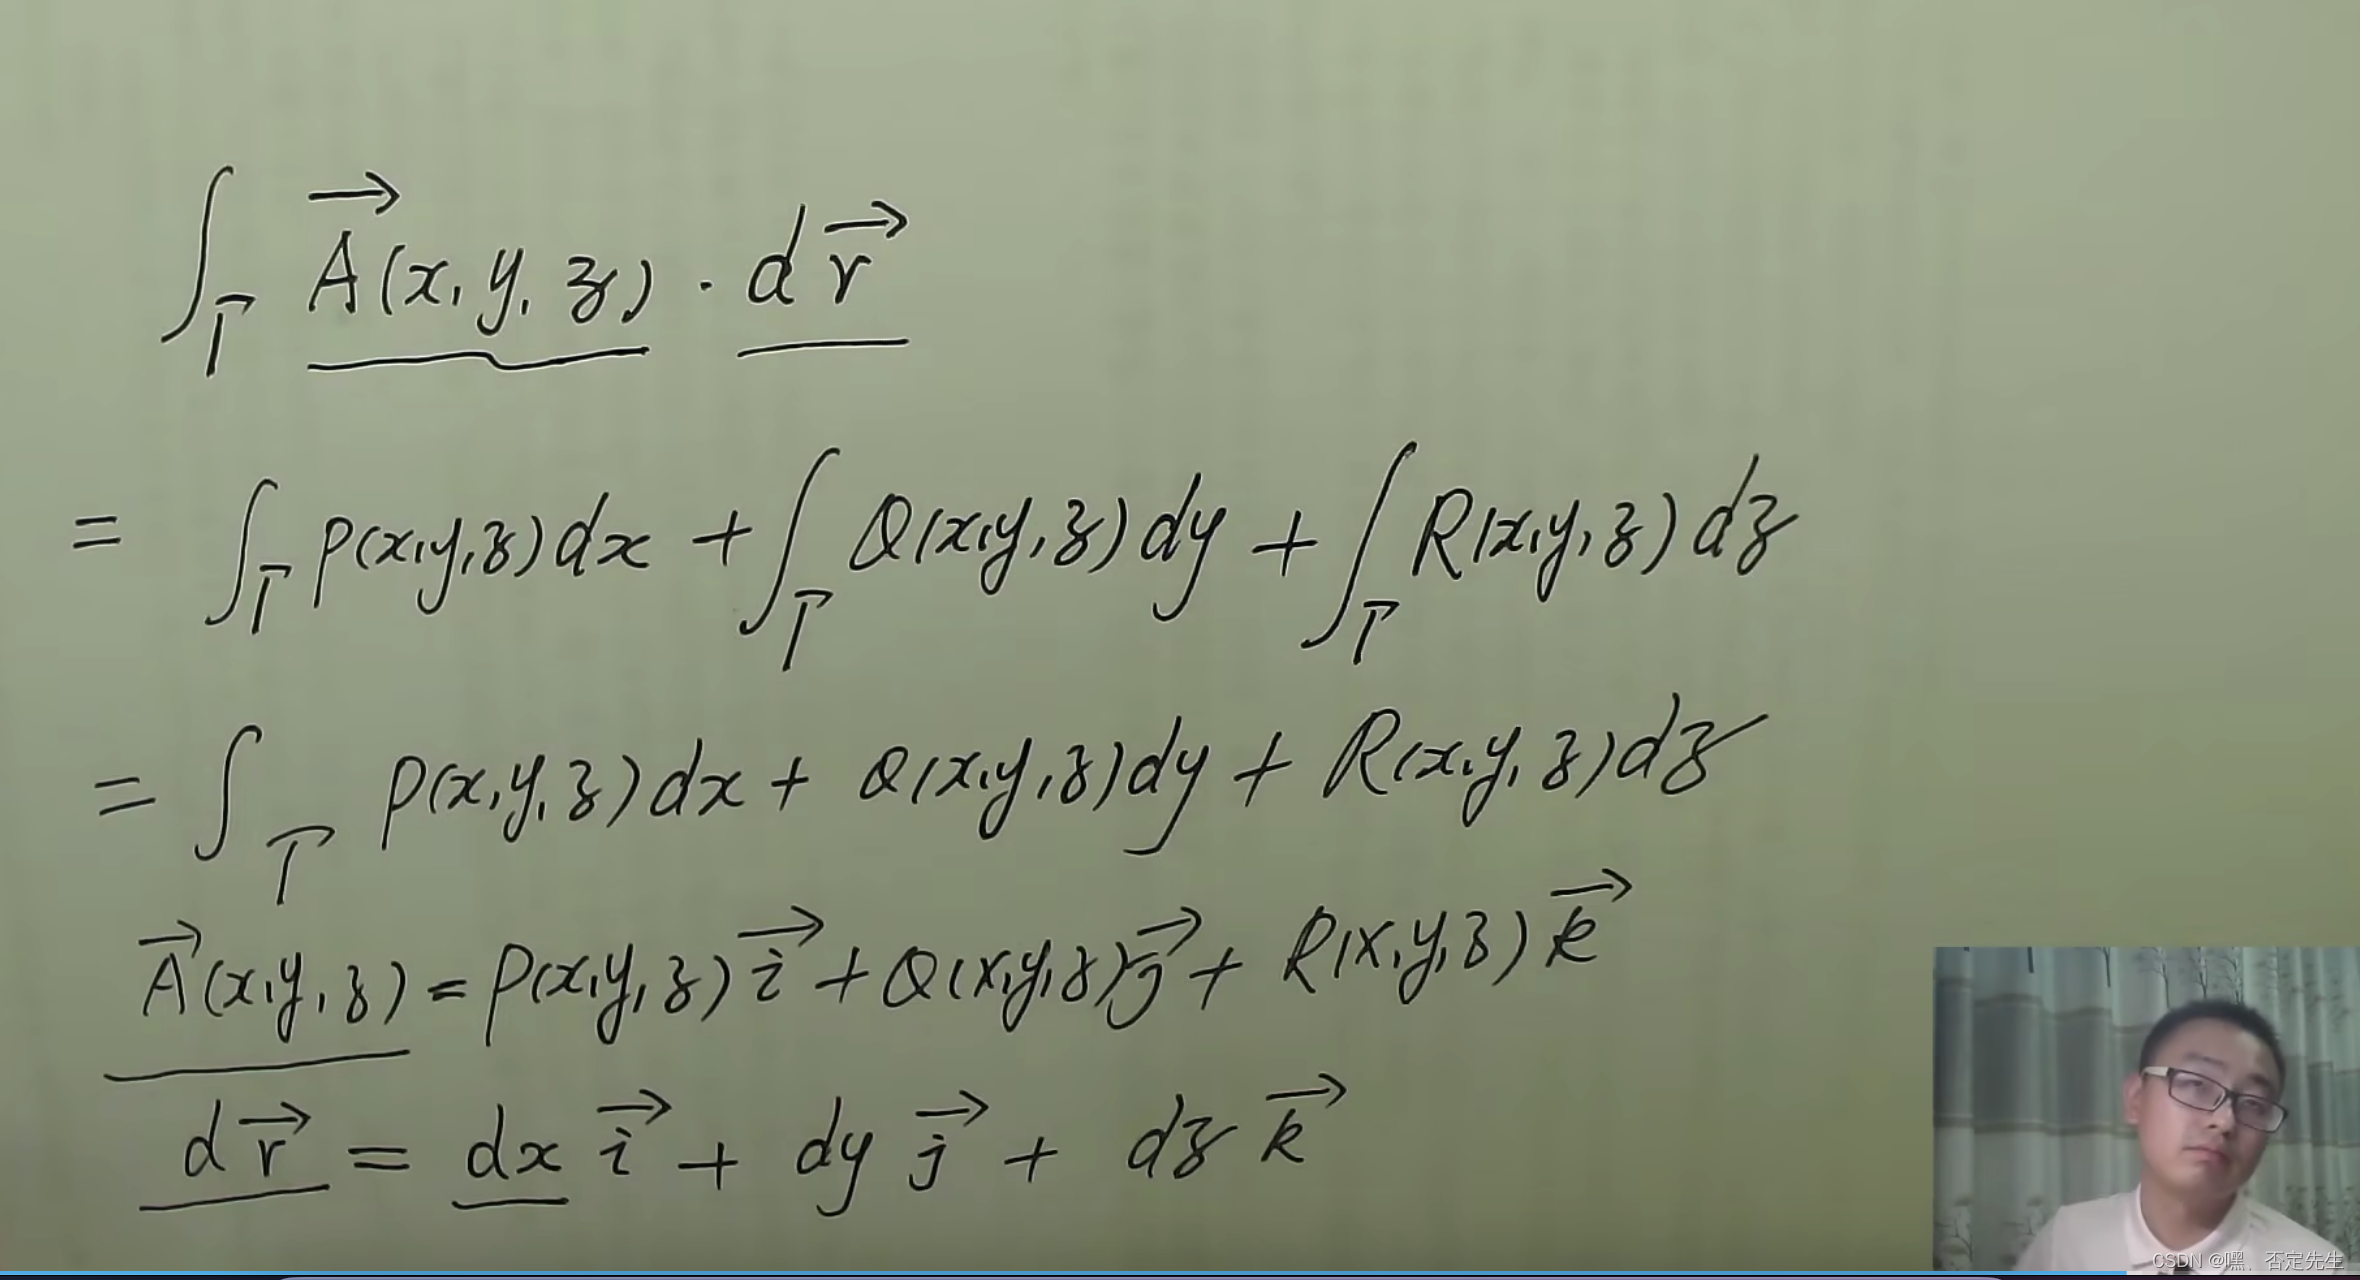 ∫_Γ A⃗(x, y, z) · d r⃗
= ∫_Γ P(x,y,z)dx + ∫_Γ Q(x,y,z)dy + ∫_Γ R(x,y,z)dz
= ∫_Γ P(x,y,z)dx + Q(x,y,z)dy + R(x,y,z)dz
A⃗(x,y,z) = P(x,y,z) i⃗ + Q(x,y,z) j⃗ + R(x,y,z) k⃗
d r⃗ = dx i⃗ + dy j⃗ + dz k⃗
CSDN @嘿、否定先生